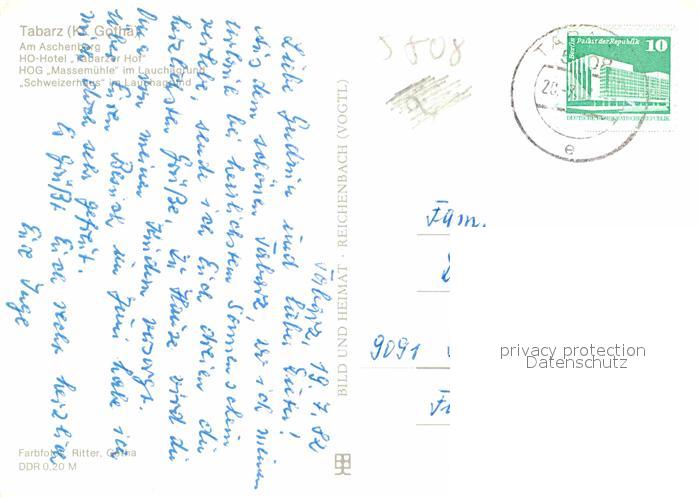 Tabarz (Kr. Gotha)
Am Aschenberg
HO-Hotel „Tabarzer Hof"
HOG „Massemühle" im Lauchagrund
„Schweizerhaus" im Lauchagrund
Tabarz, 19.7.82
Liebe Gudrun und lieber
Aus dem schönen Tabarz, wo ich meinen
Urlaub bei herrlichstem Sonnenschein
verlebe, sende ich Euch dreien die
herzlichsten Grüße. Zu Hause wird
von meinen Kindern versorgt.
Über Euren Besuch im Juni habe ich
mich sehr gefreut.
Es grüßt Euch recht herzlich
Eure Inge
Farbfotos: Ritter, Gotha
DDR 0,20 M
BILD UND HEIMAT · REICHENBACH (VOGTL)
5808
TABARZ
5808
20.
e
Berlin Palast der Republik
10
DEUTSCHE DEMOKRATISCHE REPUBLIK
Fam.
9091
privacy protection
Datenschutz